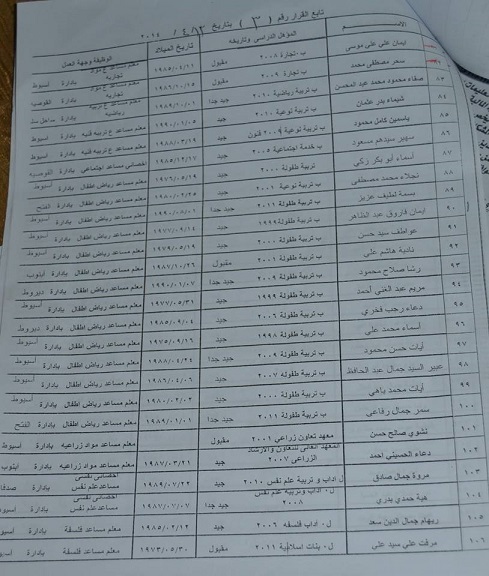 تابع القرار رقم ( ٣ ) بتاريخ ٤/١٣ / ٢٠١٤
الاســـم المؤهل الدراسى وتاريخه تاريخ الميلاد الوظيفة وجهة العمل
ايمان على على موسى ب. تجارة ٢٠٠٨ مقبول ١٩٨٥/٠٤/١١ تجاريه بادارة أسيوط
سحر مصطفى محمد ب. تجارة ٢٠٠٩ مقبول ١٩٨٦/١٠/١٥ بادارة القوصية
٨٣ صفاء محمود محمد عبد المحسن ب تربية رياضية ٢٠١٠ جيد جدا رياضية بادارة
٨٤ شيماء بدر عثمان ب تربية نوعية ٢٠١٠ جيد ١٩٩٠/٠١/٠٥ معلم مساعد تربيه فنيه بادارة أسيوط
٨٥ ياسمين كامل محمود ب تربية نوعية ٢٠٠٩ فنون جيد ١٩٨٨/٠٣/١٩ معلم مساعد تربيه فنيه بادارة أسيوط
٨٦ سهير سيدهم مسعود ب خدمة اجتماعية ٢٠٠٥ جيد ١٩٨٥/١٢/١٧ اخصائى مساعد اجتماعى بادارة القوصيه
٨٧ أسماء أبو بكر زكى تربية طفولة ٢٠٠٠ جيد ١٩٧٦/٠٥/١٩ معلم مساعد رياض اطفال بادارة أسيوط
٨٨ نجلاء محمد مصطفى ب تربية نوعية ٢٠٠١ جيد ١٩٨٠/٠٢/٢٥ معلم مساعد رياض اطفال بادارة الفتح
٨٩ بسمة لطيف عزيز ب تربية طفولة ٢٠١١ جيد جدا ١٩٩٠/٠٥/٠١ معلم مساعد رياض اطفال بادارة أسيوط
٩٠ ايمان فاروق عبد الظاهر ب تربية طفولة ١٩٩٩ جيد ١٩٧٧/٠٩/١٤ معلم مساعد رياض اطفال بادارة أسيوط
٩١ عواطف سيد حسن ب تربية طفولة ٢٠٠٠ جيد ١٩٧٩/٠٥/١٩ معلم مساعد رياض اطفال بادارة أسيوط
٩٢ نادية هاشم على ب تربية طفولة ٢٠٠١ مقبول معلم مساعد رياض اطفال بادارة أبنوب
٩٣ رشا صلاح محمود ب تربية طفولة ٢٠٠٩ جيد جدا ١٩٩٠/٠١/٠٧ معلم مساعد رياض اطفال بادارة ديروط
٩٤ مريم عبد الغنى أحمد ب تربية طفولة ١٩٩٩ جيد ١٩٧٧/٠٥/٣١ معلم مساعد رياض اطفال بادارة أسيوط
٩٥ دعاء رجب فخرى ب تربية طفولة ٢٠٠٦ جيد ١٩٨٥/٠٩/٠٤ معلم مساعد رياض اطفال بادارة ديروط
٩٦ أسماء محمد على ب تربية طفولة ١٩٩٨ جيد ١٩٧٥/٠٩/١٦ معلم مساعد رياض اطفال بادارة أسيوط
٩٧ آيات حسن محمود ب تربية طفولة ٢٠٠٩ جيد جدا ١٩٨٨/٠٤/٢٤ معلم مساعد رياض اطفال بادارة أسيوط
٩٨ عبير السيد جمال عبد الحافظ ب تربية طفولة ٢٠٠٧ جيد ١٩٨٦/٠٤/٠٦ معلم مساعد رياض اطفال بادارة أسيوط
٩٩ آيات محمد باهى ب تربية طفولة ٢٠٠٠ جيد ١٩٨٠/٠٢/٠٢ معلم مساعد رياض اطفال بادارة الفتح
١٠٠ سمر جمال رفاعى ب تربية طفولة ٢٠١١ جيد جدا ١٩٨٩/٠١/٠١ معلم مساعد رياض اطفال بادارة أسيوط
١٠١ نشوى صالح حسن معهد تعاون زراعى ٢٠٠١ مقبول معلم مساعد مواد زراعيه بادارة أسيوط
١٠٢ دعاء الحسينى أحمد المعهد العالى للتعاون والارشاد الزراعى ٢٠٠٧ جيد ١٩٨٧/٠٣/٢١ معلم مساعد مواد زراعيه بادارة أبنوب
١٠٣ مروة جمال صادق ل اداب و تربية علم نفس ٢٠١٠ جيد ١٩٨٩/٠٧/٢٢ اخصائى نفسى مساعد علم نفس بادارة صدفا
١٠٤ هبة حمدى بدرى ل. اداب وتربية علم نفس ٢٠٠٨ جيد جدا ١٩٨٧/٠٧/٠٧ اخصائى نفسى مساعد علم نفس بادارة أسيوط
١٠٥ ريهام جمال الدين سعد ل. اداب فلسفه ٢٠٠٦ جيد ١٩٨٥/٠٢/١٢ معلم مساعد فلسفة بادارة أسيوط
١٠٦ مرفت على سيد على ل. بنات اسلامية ٢٠١١ مقبول ١٩٧٣/٠٥/٣٠ معلم مساعد فلسفة بادارة أسيوط